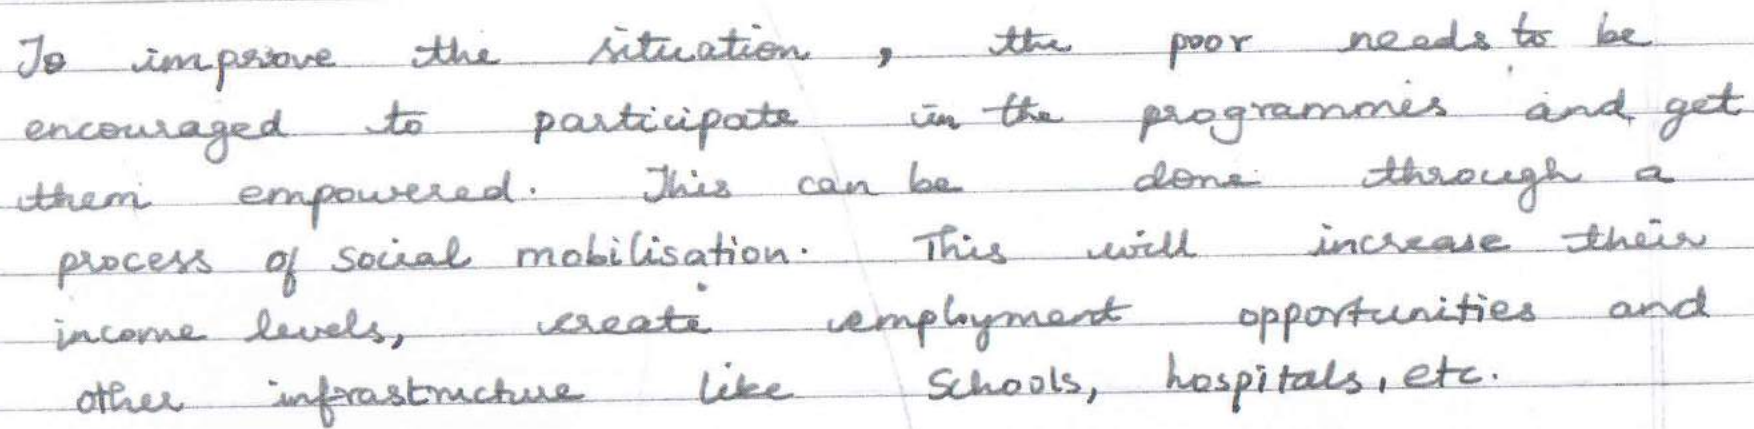 To improve the situation, the poor needs to be
encouraged to participate in the programmes and get
them empowered. This can be done through a
process of social mobilisation. This will increase their
income levels, create employment opportunities and
other infrastructure like Schools, hospitals, etc.